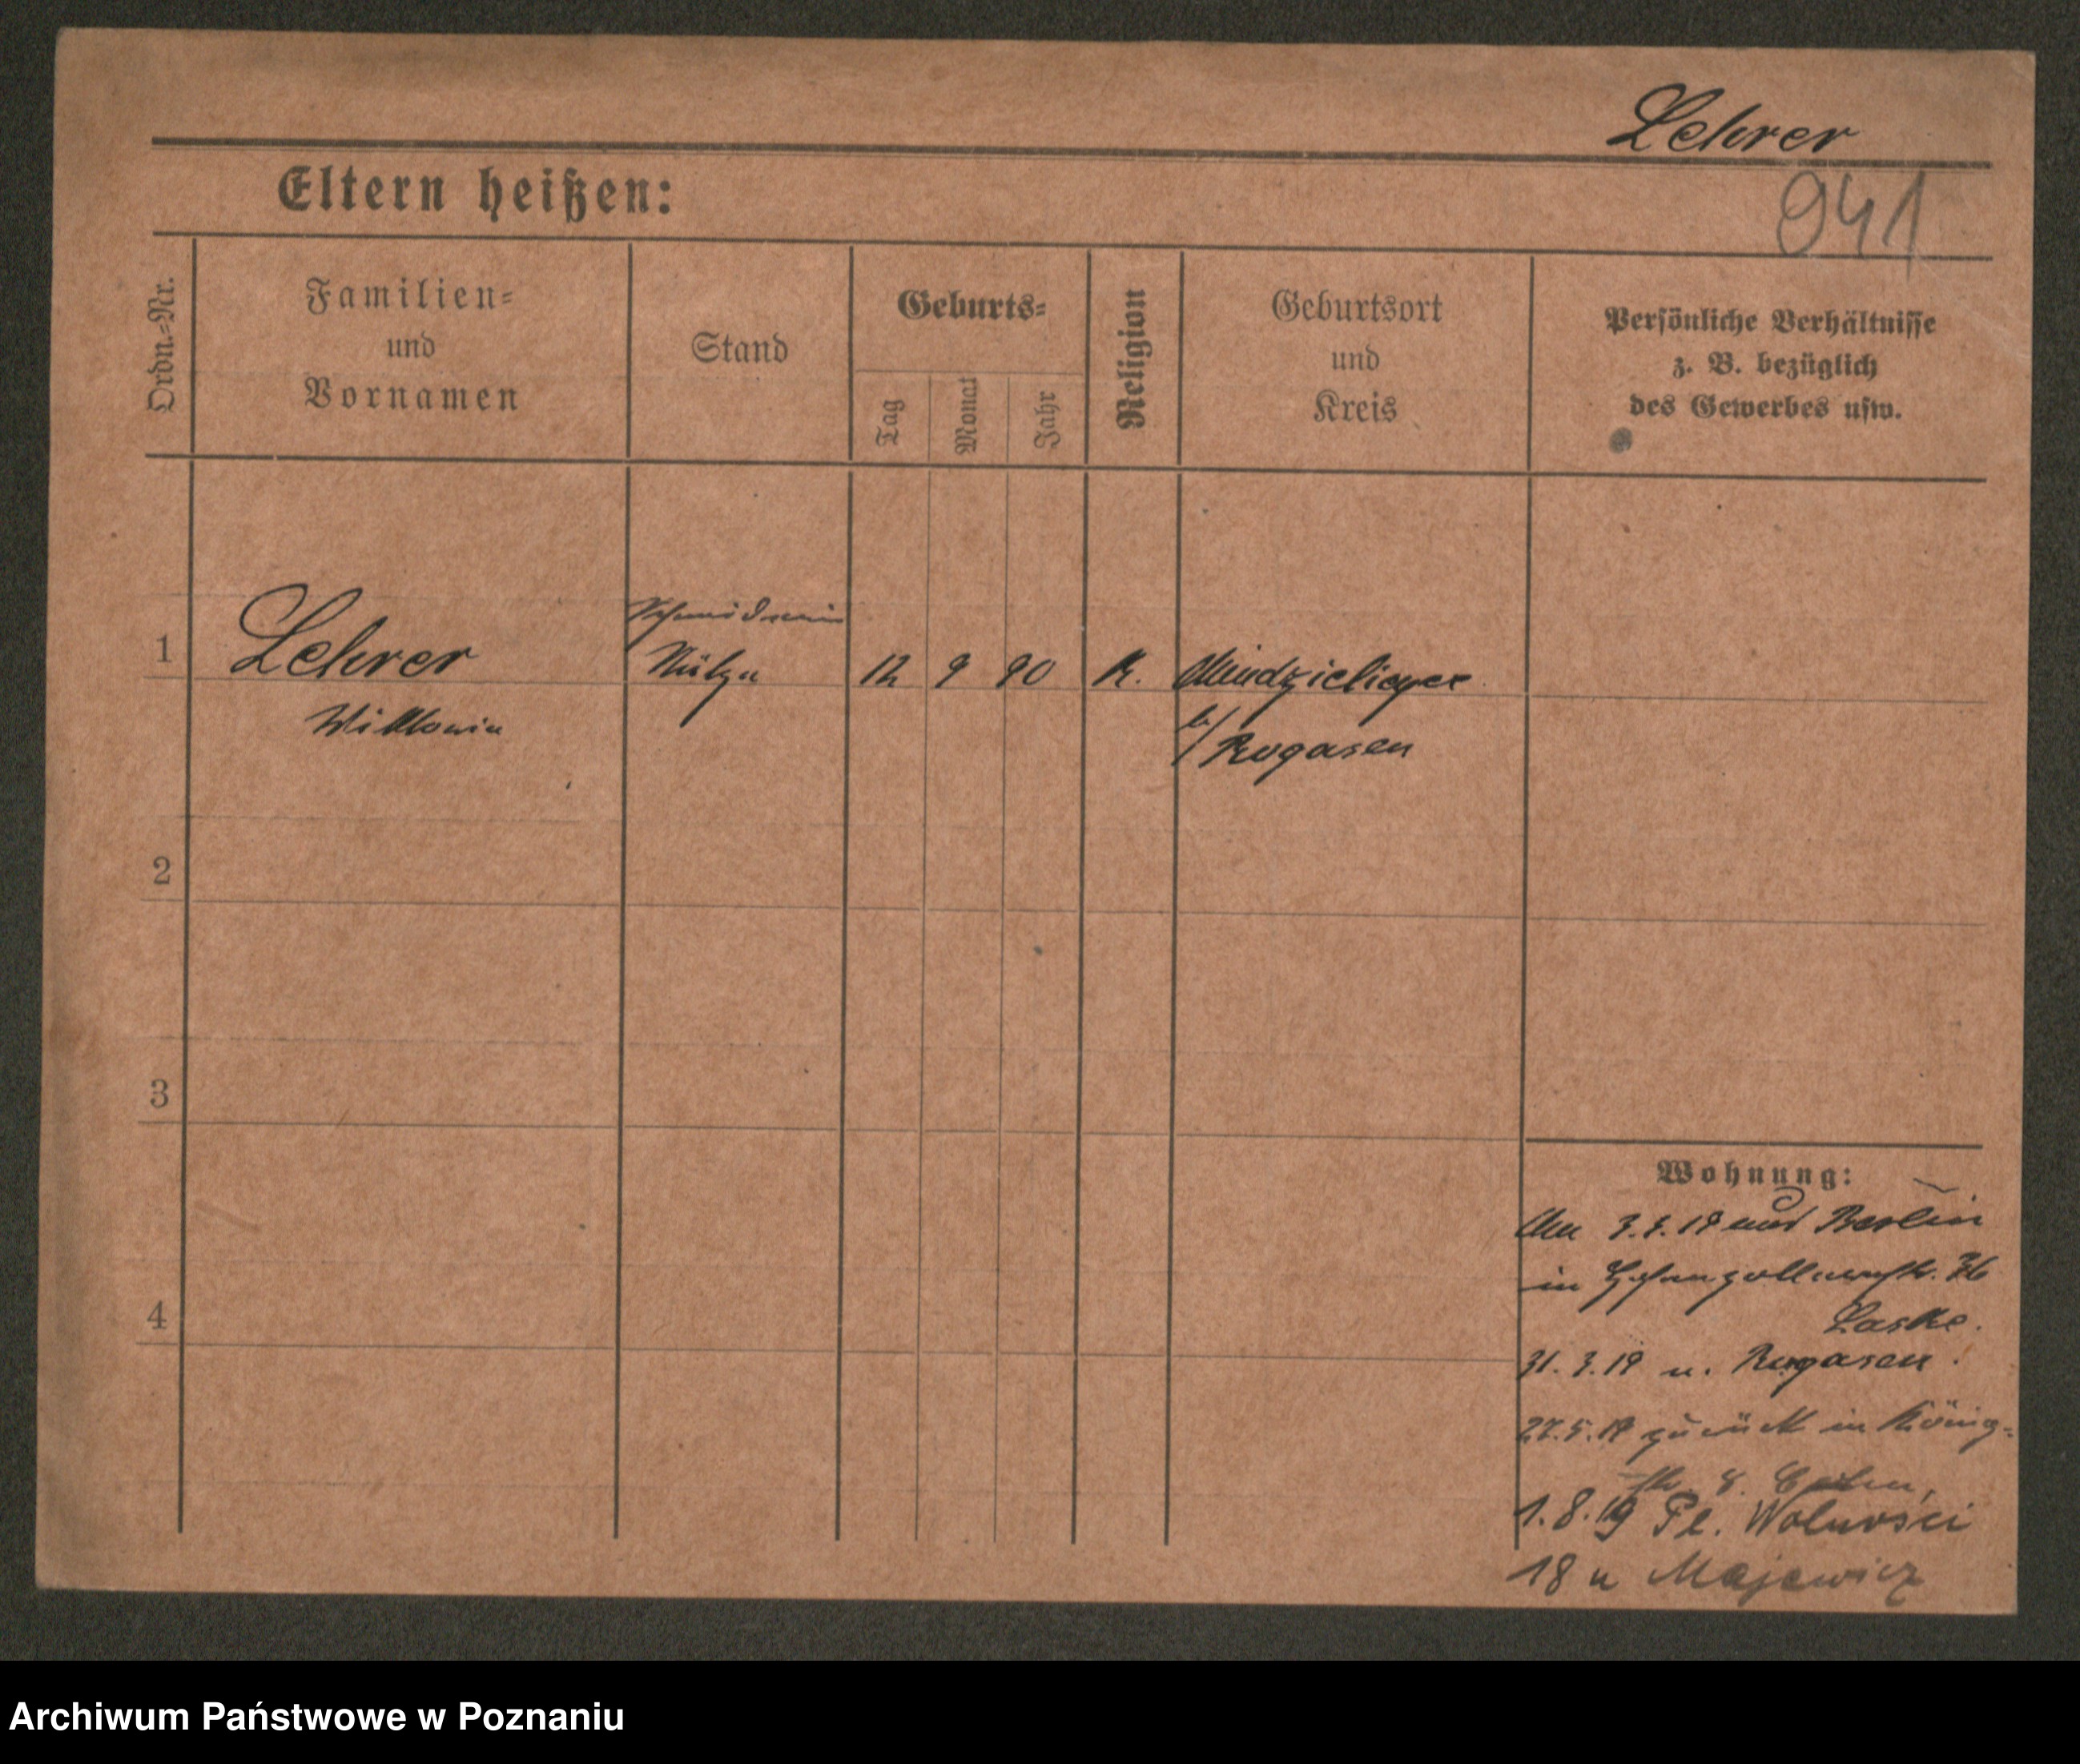 Lehrer
941
Eltern heißen:
Ordn.=Nr.
Familien=
und
Vornamen
Stand
Geburts=
Tag
Monat
Jahr
Religion
Geburtsort
und
Kreis
Persönliche Verhältnisse
z. B. bezüglich
des Gewerbes usw.
1
Lehrer
12 9 90 K.
b/ Rogasen
2
3
4
Wohnung:
3.3.19 Berlin
in Hohenzollernstr. 36
Laske.
31.3.19 n. Rogasen.
27.5.19 zurück in König=
str. 8.
1.8.19 Pl. Wolności
18 u Majewicz
Archiwum Państwowe w Poznaniu